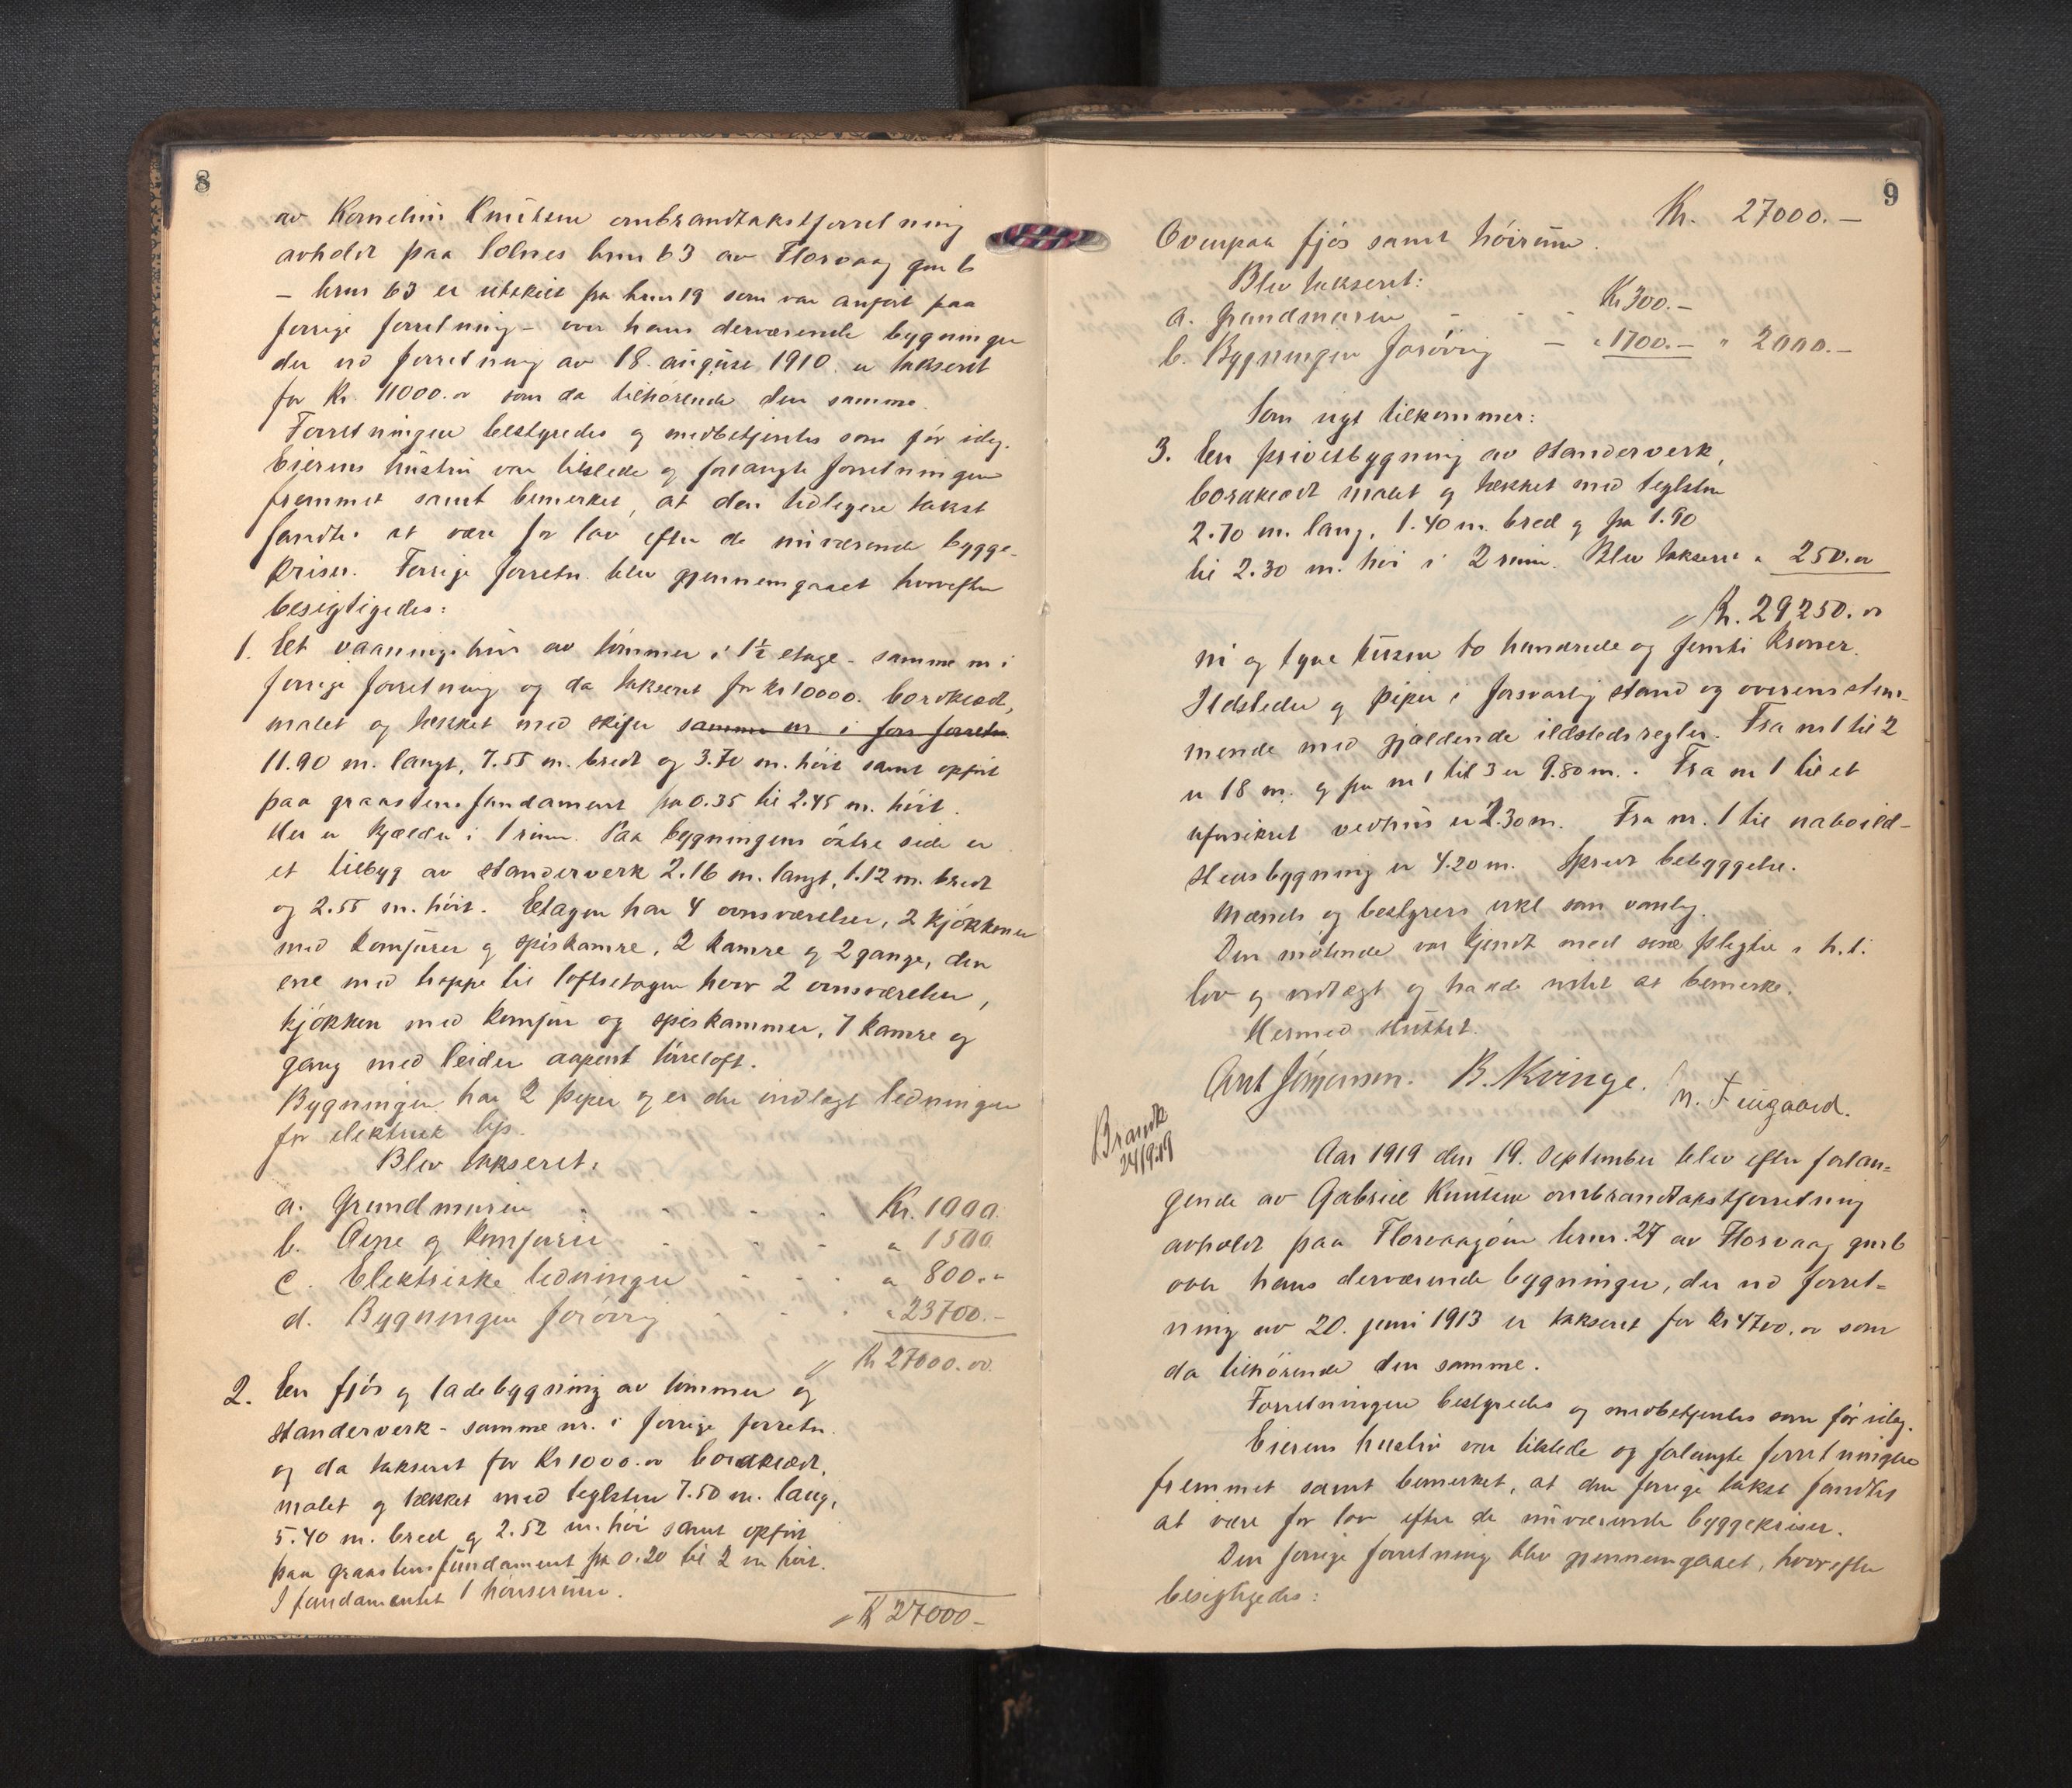 8
av Kornelius Knutsen ombrandtakstforretning
avholdt paa Solnes brnr 63 av Florvaag gnr 6
– brnr 63 er utskilt fra brnr 19 som var anført paa
forrige forretning – over hans derværende bygninger
der ved forretning av 18. august 1910 er takseret
for Kr. 11000.oo som da tilhørende den samme.
Forretningen bestyredes og medbetjentes som før idag.
Eierens hustru var tilstede og forlangte forretningen
fremmet samt bemerket, at den tidligere takst
fandtes at være for lav efter de nuværende bygge-
priser. Forrige forretn. blev gjennemgaaet hvorefter
besigtigedes:
1. Et vaaningshus av tømmer i 1½ etage – samme nr i
forrige forretning og da takseret for kr 10000. bordklædt,
malet og tækket med skifer samme nr. i forr forretn.
11.90 m. langt, 7.55 m. bredt og 3.70 m. høit samt opført
paa graastens fundament fra 0.35 til 2.45 m. høit.
Her er kjælder i 1 rum. Paa bygningens østre side er
et tilbyg av standerverk 2.16 m. langt, 1.12 m. bredt
og 2.55 m. høit. Etagen har 4 ovnsværelser, 2 kjøkkener
med komfurer og spiskamre, 2 kamre og 2 gange, den
ene med trappe til loftsetagen hvor 2 ovnsværelser,
kjøkken med komfur og spiskammer, 7 kamre og
gang med leider aapent tørreloft.
Bygningen har 2 piper og er der indlagt ledninger
for elektrisk lys.
Blev takseret:
a. Grundmuren - - - - Kr. 1000
b. Ovne og komfurer - - - " 1500
c. Elektriske ledninger - - - " 800.-
d. Bygningen forøvrig - - - " 23700.-
Kr 27000.oo
2. En fjøs og ladebygning av tømmer og
standerverk – samme nr. i forrige forretn.
og da takseret for Kr 1000.oo bordklædt,
malet og tækket med teglsten 7.50 m. lang,
5.40 m. bred og 2.52 m. høi samt opført
paa graastensfundament fra 0.20 til 2 m høit.
I fundamentet 1 hønserum.
Kr 27000–
9
Kr. 27000.–
Ovenpaa fjøs samt høirum.
Blev takseret:
a. Grundmuren - - - Kr 300.–
b. Bygningen forøvrig – " 1700.– " 2000.–
Som nyt tilkommer:
3. En privetbygning av standerverk,
bordklædt malet og tækket med teglsten
2.70 m. lang, 1.40 m. bred og fra 1.90
til 2.30 m. høi i 2 rum. Blev takseret " 250.oo
Kr. 29250.oo
ni og tyve tusen to hundrede og femti kroner.
Ildsteder og piper i forsvarlig stand og overensstem-
mende med gjældende ildstedsregler. Fra nr 1 til 2
er 18 m. og fra nr 1 til 3 er 9.80 m. Fra nr 1 til et
uforsikret vedhus er 2.30 m. Fra nr. 1 til naboild-
stedsbygning er 4.20 m. Spredt bebyggelse.
Mænds og bestyrers utkl som vanlig.
Den møtende var kjendt med sine pligter i h.t.
lov og vedtægt og havde intet at bemerke.
Hermed sluttet.
Ant Jørgensen. B. Kvinge. M. Fuigaard.
Brandk
24/9.19
Aar 1919 den 19. September blev efter forlan-
gende av Gabriel Knutsen ombrandtakstforretning
avholdt paa Florvaagøen brnr. 27 av Florvaag gnr 6
over hans derværende bygninger, der ved forret-
ning av 20. juni 1913 er takseret for Kr 4700.oo som
da tilhørende den samme.
Forretningen bestyredes og medbetjentes som før idag.
Eierens hustru var tilstede og forlangte forretningen
fremmet samt bemerket, at den forrige takst fandtes
at være for lav efter de nuværende byggepriser.
Den forrige forretning blev gjennemgaaet, hvorefter
besigtigedes: